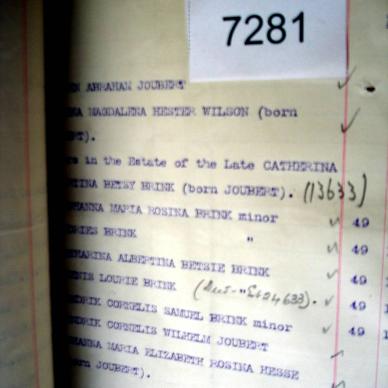 7281
ABRAHAM JOUBERT
MAGDALENA HESTER WILSON (born
in the Estate of the Late CATHERINA
TINA BETSY BRINK (born JOUBERT). (13633)
HANNA MARIA ROSINA BRINK minor 49
RIES BRINK " 49
HARINA ALBERTINA BETSIE BRINK 49
ENIS LOURIE BRINK 49
DRIK CORNELIS SAMUEL BRINK minor 49
DRIK CORNELIS WILHELM JOUBERT
HANNA MARIA ELIZABETH ROSINA HESSE
orn JOUBERT).